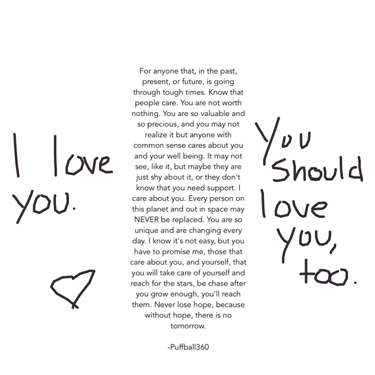 I love
you.
For anyone that, in the past,
present, or future, is going
through tough times. Know that
people care. You are not worth
nothing. You are so valuable and
so precious, and you may not
realize it but anyone with
common sense cares about you
and your well being. It may not
see, like it, but maybe they are
just shy about it, or they don't
know that you need support. I
care about you. Every person on
this planet and out in space may
NEVER be replaced. You are so
unique and are changing every
day. I know it's not easy, but you
have to promise me, those that
care about you, and yourself, that
you will take care of yourself and
reach for the stars, be chase after
you grow enough, you'll reach
them. Never lose hope, because
without hope, there is no
tomorrow.
-Puffball360
You
Should
love
you,
too.